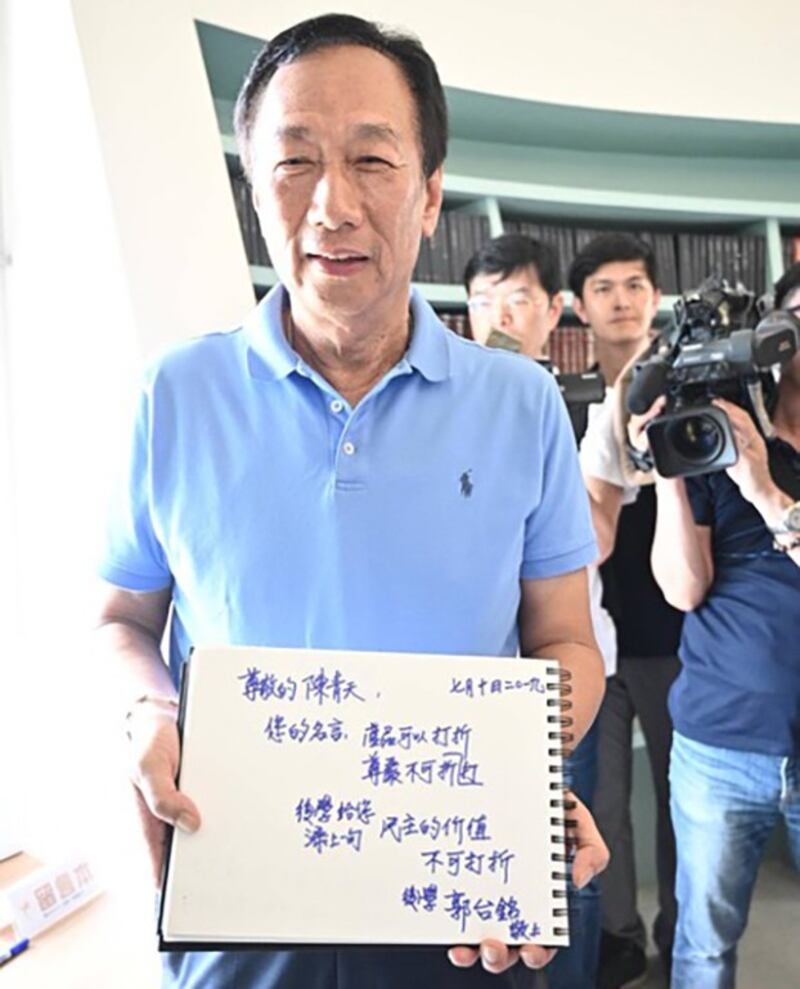 尊敬的陳青天，
七月十日二〇一九
您的名言，產品可以打折
尊嚴不可打折
後學給您
添上句 民主的价值
不可打折
後學 郭台銘
敬上
留言本